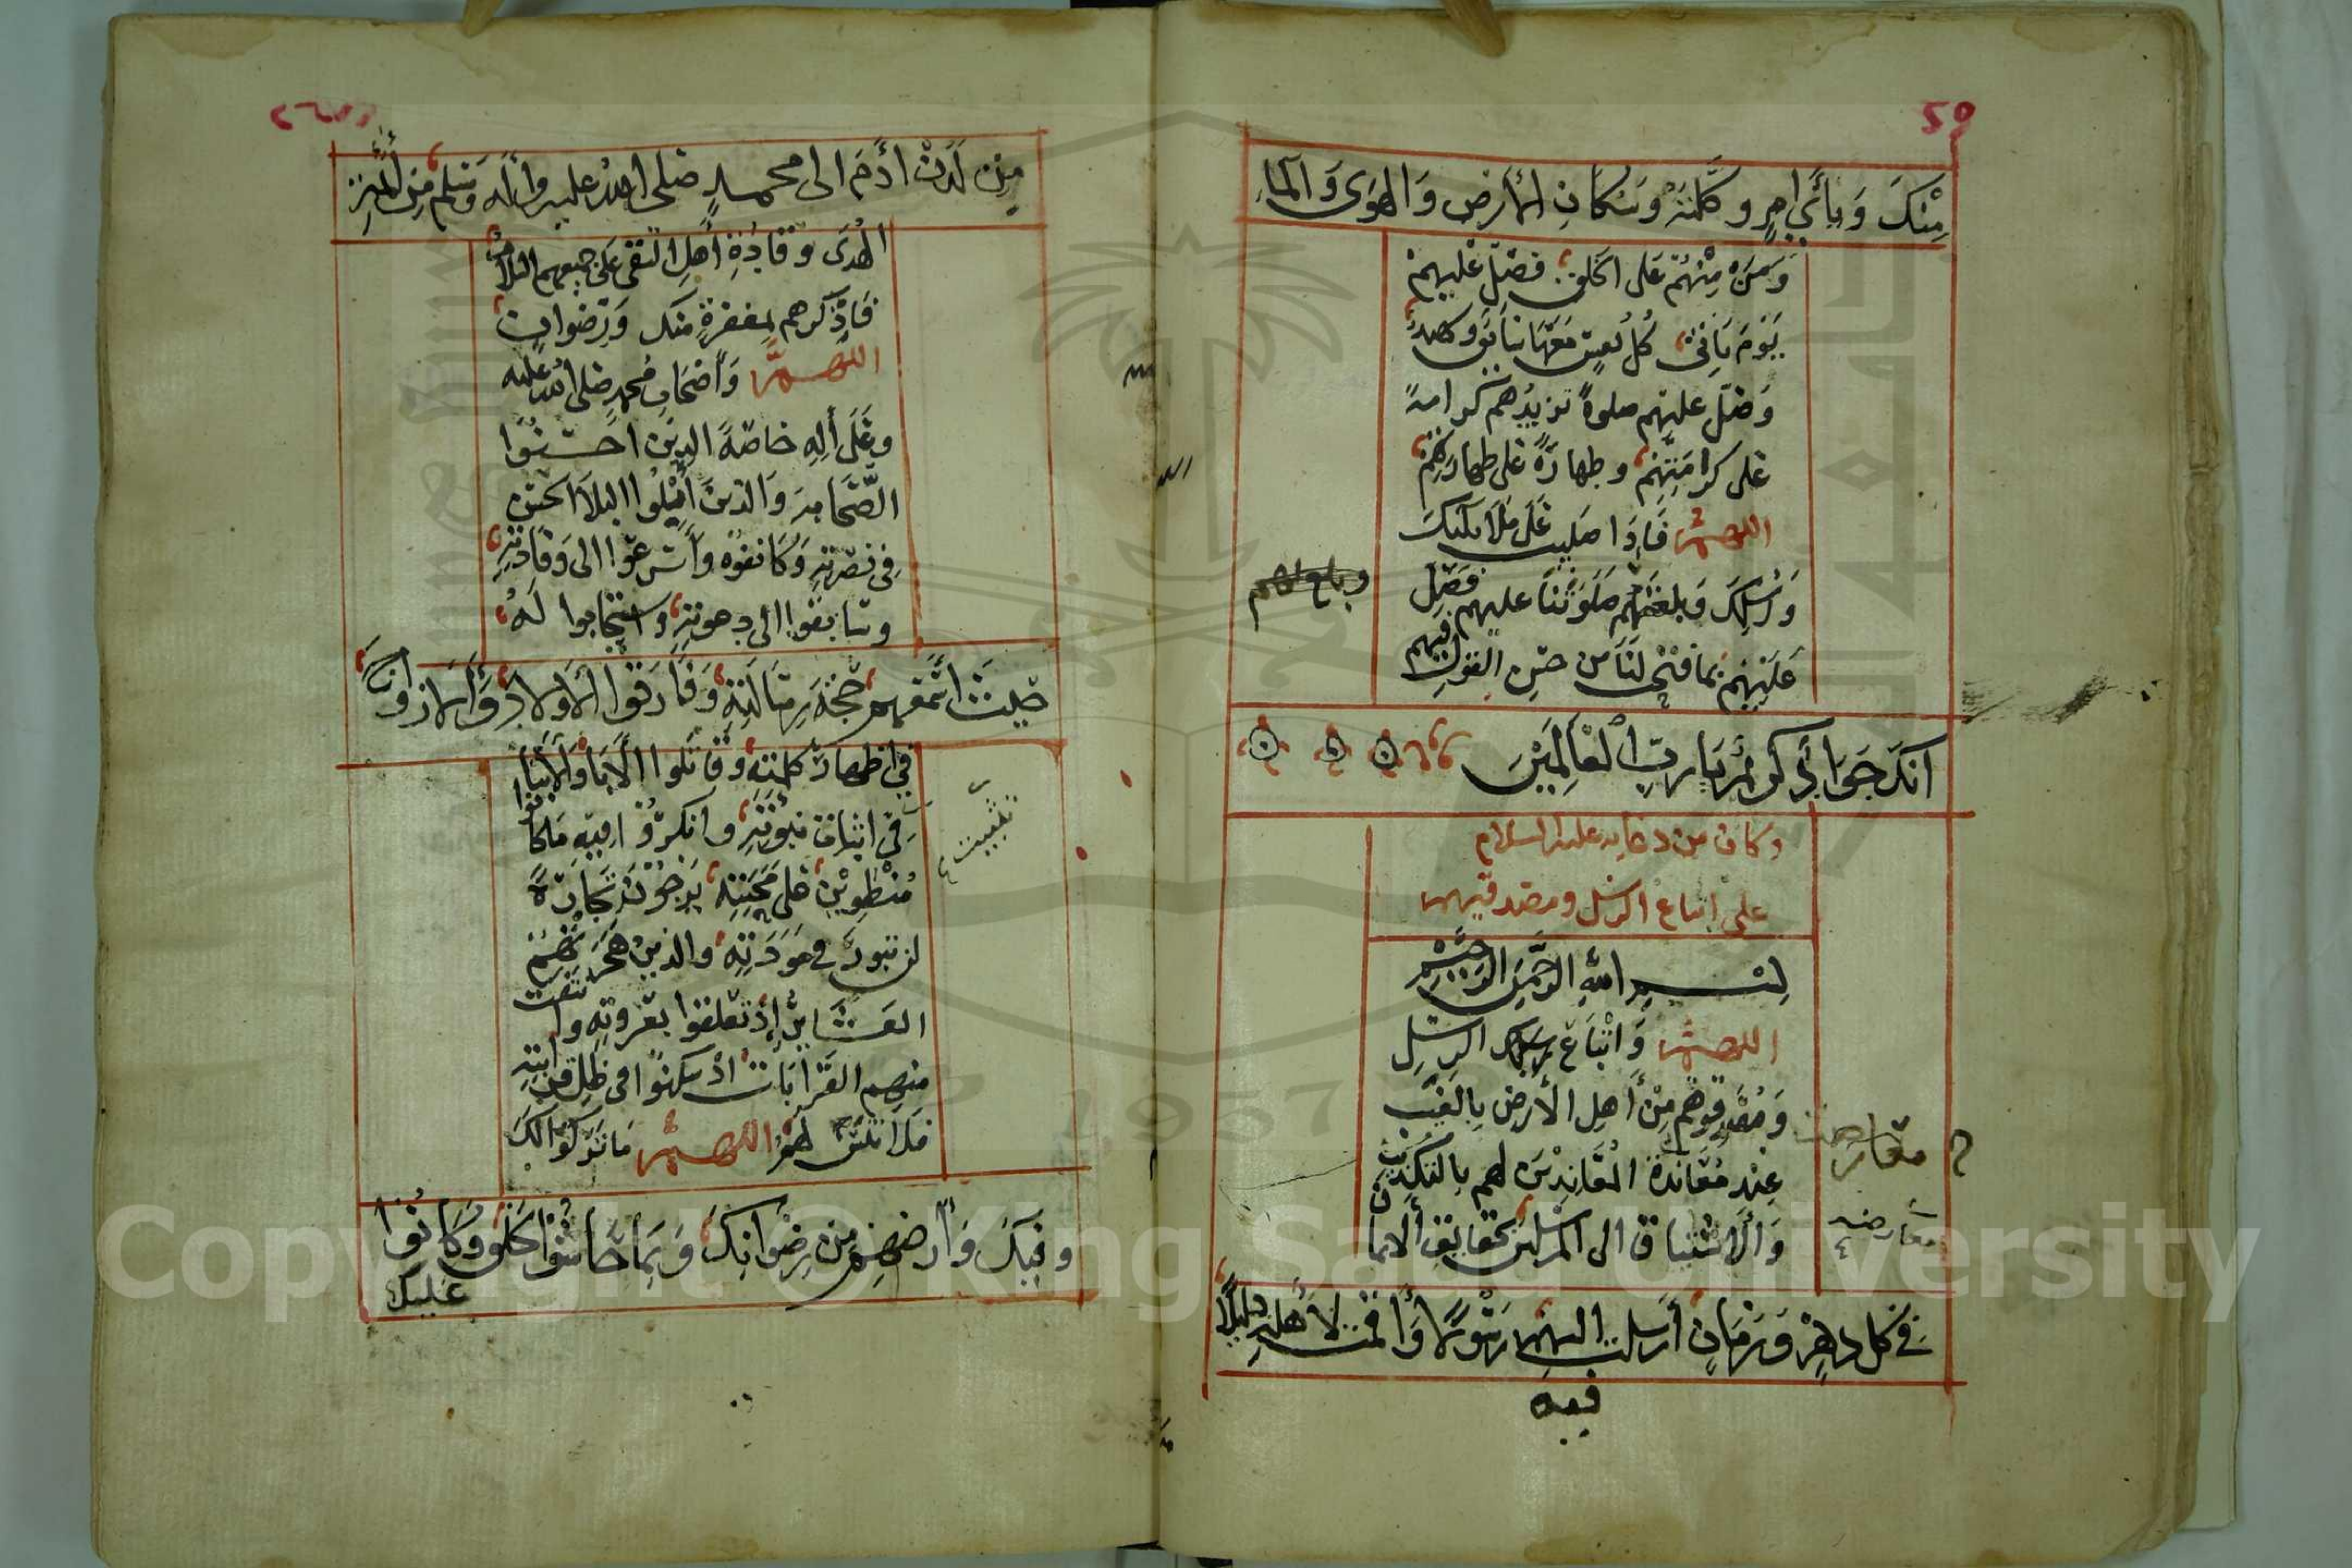 ٥٩
مِنْكَ وَبِأَيِّ امرٍ وكَّلتَهُ وَسُكَّانِ الأرض وَالهَوى وَالمآءِ
وَمَن مِنْهُمْ عَلى الخَلق، فصَلِّ عَلَيهِمْ
يَوْمَ يَاتي كُل نفسٍ مَعَهَا سَائق وَشهيد
وَصَلِّ عليهم صلوةً تزيدُهم كرامةً
عَلى كرامَتِهِمْ، وطهارَةً عَلى طهارتِهِمْ
اللهم فَإِذَا صَلَّيتَ عَلَى مَلَائكتكَ
وَرُسُلِكَ وَبلغتَهُم صَلَوتَنَا عليهم فصَلِّ
وبلغتهم
عَلَيْهِمْ بمَا فتحتَ لَنَا من حُسنِ القولِ فيهم
انكَ جَوَادٌ كريمٌ يَا ربَّ الْعَالَمِيْنَ
وكان من دعايه عليه السلام
على اتباع الرسل ومصدقيهم
بِسْمِ اللهِ الرَّحْمَنِ الرَّحِيمِ
اللهم وَاتْبَاعُ الرسُلِ
وَمُصَدِّقوهُم مِنْ أَهلِ الأَرضِ بِالغَيْبِ
عِنْدَ مُعَانَدَةِ المُعَانِدِيْنَ لهم بِالتكْذِيْبِ
معارضة
وَالاشْتياقِ الى المرسَلين بحقايقِ الايمان
معارضه
في كل دهرٍ وَزمَانٍ أَرسلتَ فيهِ رَسُولًا وَأَقمتَ لأَهلِهِ دليلًا
فيه
مِن لَدُنْ ادَمَ الى محمدٍ صَلى اللهُ عليه وَاله وَسَلم مِن أَئمَّةِ
الهُدَى وَقَادَةِ أَهلِ التقى عَلى جميعهم السلام
فَاذْكُرهم بمغفرةٍ منك وَرِضوانٍ
اللهمَّ وَأَصْحَابُ مُحمدٍ صَلى اللهُ عليه
وعَلَى أَلِهِ خاصَّةً الذينَ احسَنُوا
الصَّحَابةَ وَالذينَ أَبْلَوُا البَلَاءَ الحَسَنَ
فِي نصْرتهِ وَكَانفوْهُ وَأَسْرعُوا الى وَفَادتهِ
وسَابَقُوا الى دعوتهِ، وَاسْتجَابوا لَهُ
حَيثُ اسْمَعَهم حُجَّةَ رسَالَتِهِ، وَفَارَقوا الاولادَ وَالازوَاجَ
في اظهَارِ كلمَتِهِ وَقَاتَلوا الابَاءَ وَالابْنَاءَ
فِي اثبات نبُوَّتهِ، وانتصَرُوْا بِهِ ومَن كانوا
تثبيت
مُنْطوِيْنَ على مَحَبَّتِهِ يَرجُوْنَ تجَارَةً
لن تبورَ في مَوَدَّتِهِ والذينَ هَجَرَتهُمُ
العَشَايرُ إِذْ تعَلقوا بعُروتهِ وانتفت
منهم القرَابَاتُ اذْ سَكنوا في ظِلِّ قَرابَتهِ
فَلَا تنْسَ لهمُ اللهم مَا تَرَكُوا لكَ
وَفيكَ وَأَرضهمْ مِن رِضْوَانِكَ وَبِمَا حَاشُوا الخَلقَ وَكَانُوا
عَليكَ